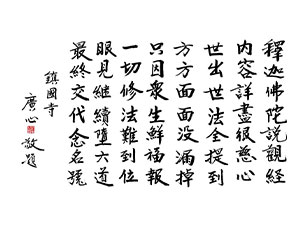 釋迦佛陀説觀經
内容詳盡很慈心
世出世法全提到
方方面面没漏掉
只因衆生鮮福報
一切修法難到位
眼見繼續墮六道
最終交代念名號
鎮國寺
廣心 敬題